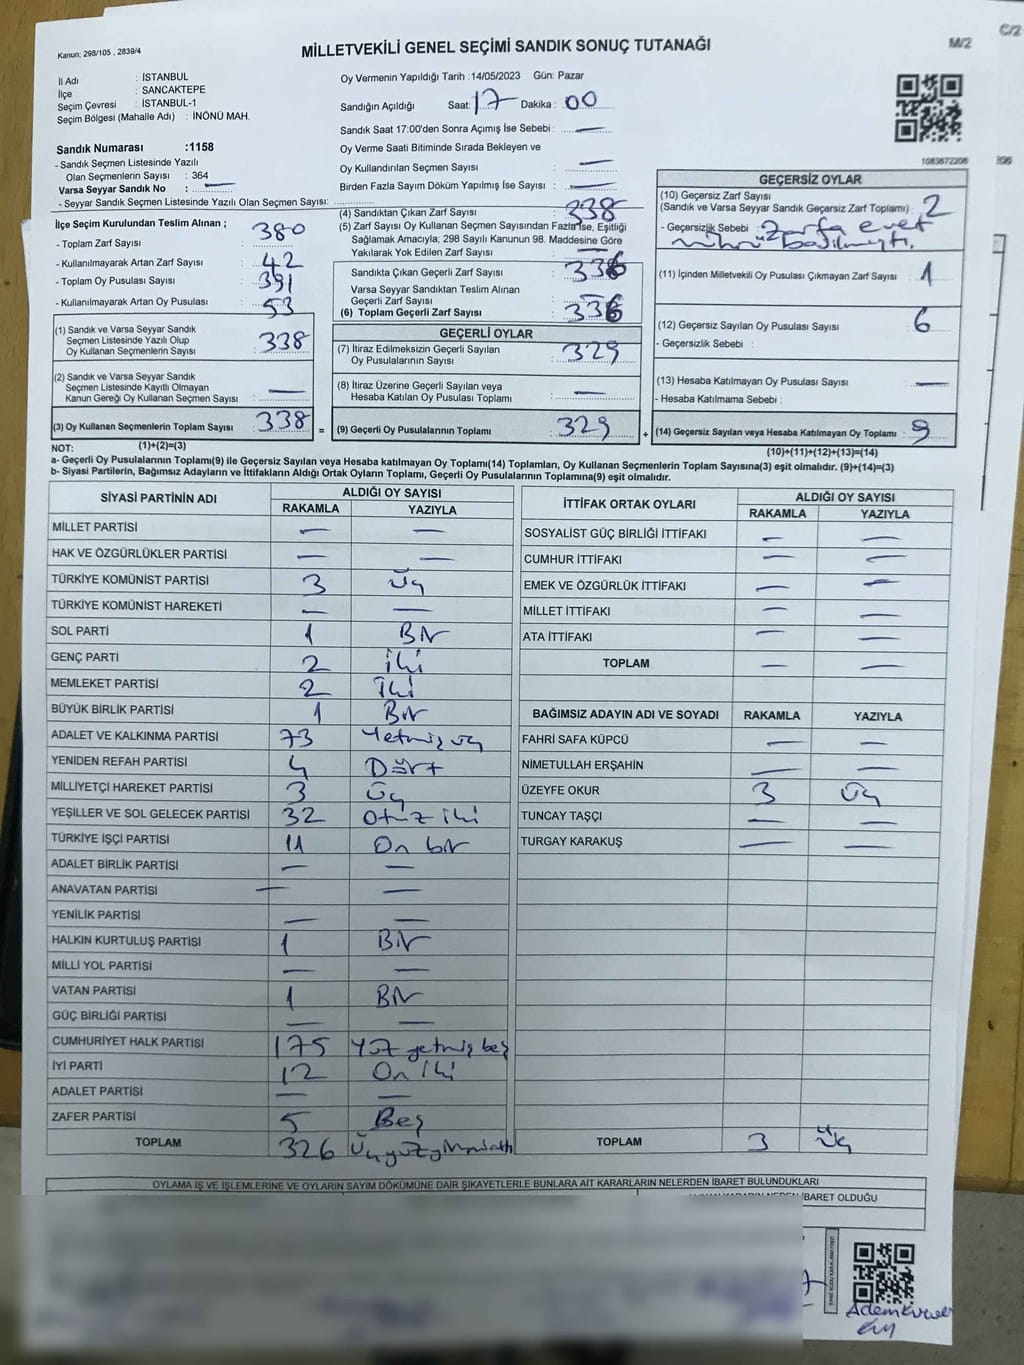 Kanun; 298/105 , 2839/4
MİLLETVEKİLİ GENEL SEÇİMİ SANDIK SONUÇ TUTANAĞI
M/2
C/2
İl Adı : İSTANBUL
İlçe : SANCAKTEPE
Seçim Çevresi : İSTANBUL-1
Seçim Bölgesi (Mahalle Adı) : İNÖNÜ MAH.
Sandık Numarası :1158
- Sandık Seçmen Listesinde Yazılı
Olan Seçmenlerin Sayısı : 364
Varsa Seyyar Sandık No : —
- Seyyar Sandık Seçmen Listesinde Yazılı Olan Seçmen Sayısı:
Oy Vermenin Yapıldığı Tarih :14/05/2023 Gün: Pazar
Sandığın Açıldığı Saat: 17 Dakika : 00
Sandık Saat 17:00'den Sonra Açımış İse Sebebi : —
Oy Verme Saati Bitiminde Sırada Bekleyen ve
Oy Kullandırılan Seçmen Sayısı : —
Birden Fazla Sayım Döküm Yapılmış İse Sayısı : —
1083672206
İlçe Seçim Kurulundan Teslim Alınan ;
- Toplam Zarf Sayısı : 380
- Kullanılmayarak Artan Zarf Sayısı : 42
- Toplam Oy Pusulası Sayısı : 391
- Kullanılmayarak Artan Oy Pusulası : 53
(1) Sandık ve Varsa Seyyar Sandık
Seçmen Listesinde Yazılı Olup
Oy Kullanan Seçmenlerin Sayısı : 338
(2) Sandık ve Varsa Seyyar Sandık
Seçmen Listesinde Kayıtlı Olmayan
Kanun Gereği Oy Kullanan Seçmen Sayısı : —
(3) Oy Kullanan Seçmenlerin Toplam Sayısı : 338
(1)+(2)=(3)
(4) Sandıktan Çıkan Zarf Sayısı : 338
(5) Zarf Sayısı Oy Kullanan Seçmen Sayısından Fazla İse, Eşitliği
Sağlamak Amacıyla; 298 Sayılı Kanunun 98. Maddesine Göre
Yakılarak Yok Edilen Zarf Sayısı : —
Sandıkta Çıkan Geçerli Zarf Sayısı : 336
Varsa Seyyar Sandıktan Teslim Alınan
Geçerli Zarf Sayısı : —
(6) Toplam Geçerli Zarf Sayısı : 336
GEÇERLİ OYLAR
(7) İtiraz Edilmeksizin Geçerli Sayılan
Oy Pusulalarının Sayısı : 329
(8) İtiraz Üzerine Geçerli Sayılan veya
Hesaba Katılan Oy Pusulası Toplamı : —
= (9) Geçerli Oy Pusulalarının Toplamı : 329
GEÇERSİZ OYLAR
(10) Geçersiz Zarf Sayısı
(Sandık ve Varsa Seyyar Sandık Geçersiz Zarf Toplamı) : 2
- Geçersizlik Sebebi : Zarfa evet
mührü basılmıştı.
(11) İçinden Milletvekili Oy Pusulası Çıkmayan Zarf Sayısı : 1
(12) Geçersiz Sayılan Oy Pusulası Sayısı : 6
- Geçersizlik Sebebi :
(13) Hesaba Katılmayan Oy Pusulası Sayısı : —
- Hesaba Katılmama Sebebi :
+ (14) Geçersiz Sayılan veya Hesaba Katılmayan Oy Toplamı : 9
(10)+(11)+(12)+(13)=(14)
NOT:
a- Geçerli Oy Pusulalarının Toplamı(9) ile Geçersiz Sayılan veya Hesaba katılmayan Oy Toplamı(14) Toplamları, Oy Kullanan Seçmenlerin Toplam Sayısına(3) eşit olmalıdır. (9)+(14)=(3)
b- Siyasi Partilerin, Bağımsız Adayların ve İttifakların Aldığı Ortak Oyların Toplamı, Geçerli Oy Pusulalarının Toplamına(9) eşit olmalıdır.
SİYASİ PARTİNİN ADI ALDIĞI OY SAYISI
RAKAMLA YAZIYLA
MİLLET PARTİSİ — —
HAK VE ÖZGÜRLÜKLER PARTİSİ — —
TÜRKİYE KOMÜNİST PARTİSİ 3 Üç
TÜRKİYE KOMÜNİST HAREKETİ — —
SOL PARTİ 1 Bir
GENÇ PARTİ 2 İki
MEMLEKET PARTİSİ 2 İki
BÜYÜK BİRLİK PARTİSİ 1 Bir
ADALET VE KALKINMA PARTİSİ 73 Yetmiş üç
YENİDEN REFAH PARTİSİ 4 Dört
MİLLİYETÇİ HAREKET PARTİSİ 3 Üç
YEŞİLLER VE SOL GELECEK PARTİSİ 32 Otuz iki
TÜRKİYE İŞÇİ PARTİSİ 11 On bir
ADALET BİRLİK PARTİSİ — —
ANAVATAN PARTİSİ — —
YENİLİK PARTİSİ — —
HALKIN KURTULUŞ PARTİSİ 1 Bir
MİLLİ YOL PARTİSİ — —
VATAN PARTİSİ 1 Bir
GÜÇ BİRLİĞİ PARTİSİ — —
CUMHURİYET HALK PARTİSİ 175 Yüz yetmiş beş
İYİ PARTİ 12 On iki
ADALET PARTİSİ — —
ZAFER PARTİSİ 5 Beş
TOPLAM 326 Üçyüzyirmialtı
İTTİFAK ORTAK OYLARI ALDIĞI OY SAYISI
RAKAMLA YAZIYLA
SOSYALİST GÜÇ BİRLİĞİ İTTİFAKI — —
CUMHUR İTTİFAKI — —
EMEK VE ÖZGÜRLÜK İTTİFAKI — —
MİLLET İTTİFAKI — —
ATA İTTİFAKI — —
TOPLAM — —
BAĞIMSIZ ADAYIN ADI VE SOYADI RAKAMLA YAZIYLA
FAHRİ SAFA KÜPCÜ — —
NİMETULLAH ERŞAHİN — —
ÜZEYFE OKUR 3 Üç
TUNCAY TAŞÇI — —
TURGAY KARAKUŞ — —
TOPLAM 3 Üç
OYLAMA İŞ VE İŞLEMLERİNE VE OYLARIN SAYIM DÖKÜMÜNE DAİR ŞİKAYETLERLE BUNLARA AİT KARARLARIN NELERDEN İBARET BULUNDUKLARI
İBARET OLDUĞU
Adem